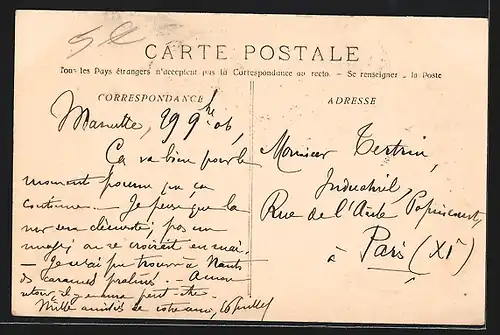 CARTE POSTALE
Tous les Pays étrangers n'acceptent pas la Correspondance au recto. - Se renseigner à la Poste
CORRESPONDANCE
29 9bre 06,
Ça va bien pour le
moment pourvu que ça
continue. - Je pense que la
on se croirait en mai.
- Je n'ai pu trouver à Nantes
de caramels pralinés. -
retour il y en aura peut-être.
Mille amitiés de
ADRESSE
Monsieur Tertrin,
Industriel,
Rue de l'Asile Popincourt,
à
Paris (XIe)